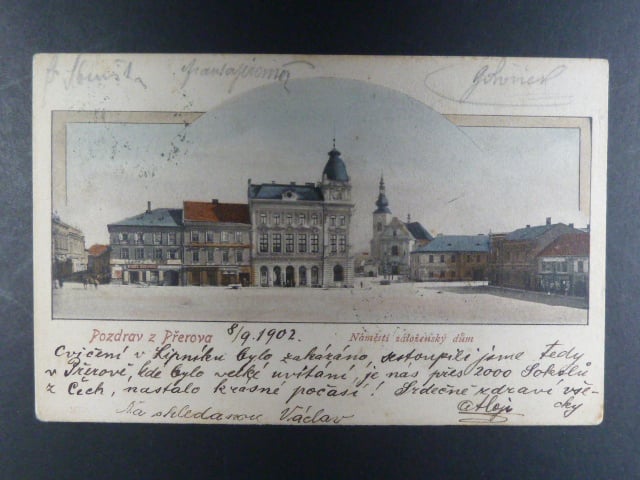 Pozdrav z Přerova 8/9. 1902. Náměstí záloženský dům
Cvičení v Lipníku bylo zakázáno, sestoupili jsme tedy
v Přerově, kde bylo velké uvítání, je nás přes 2000 Sokolů
z Čech, nastalo krásné počasí! Srdečně zdraví vše-
cky
Na shledanou Václav Alois